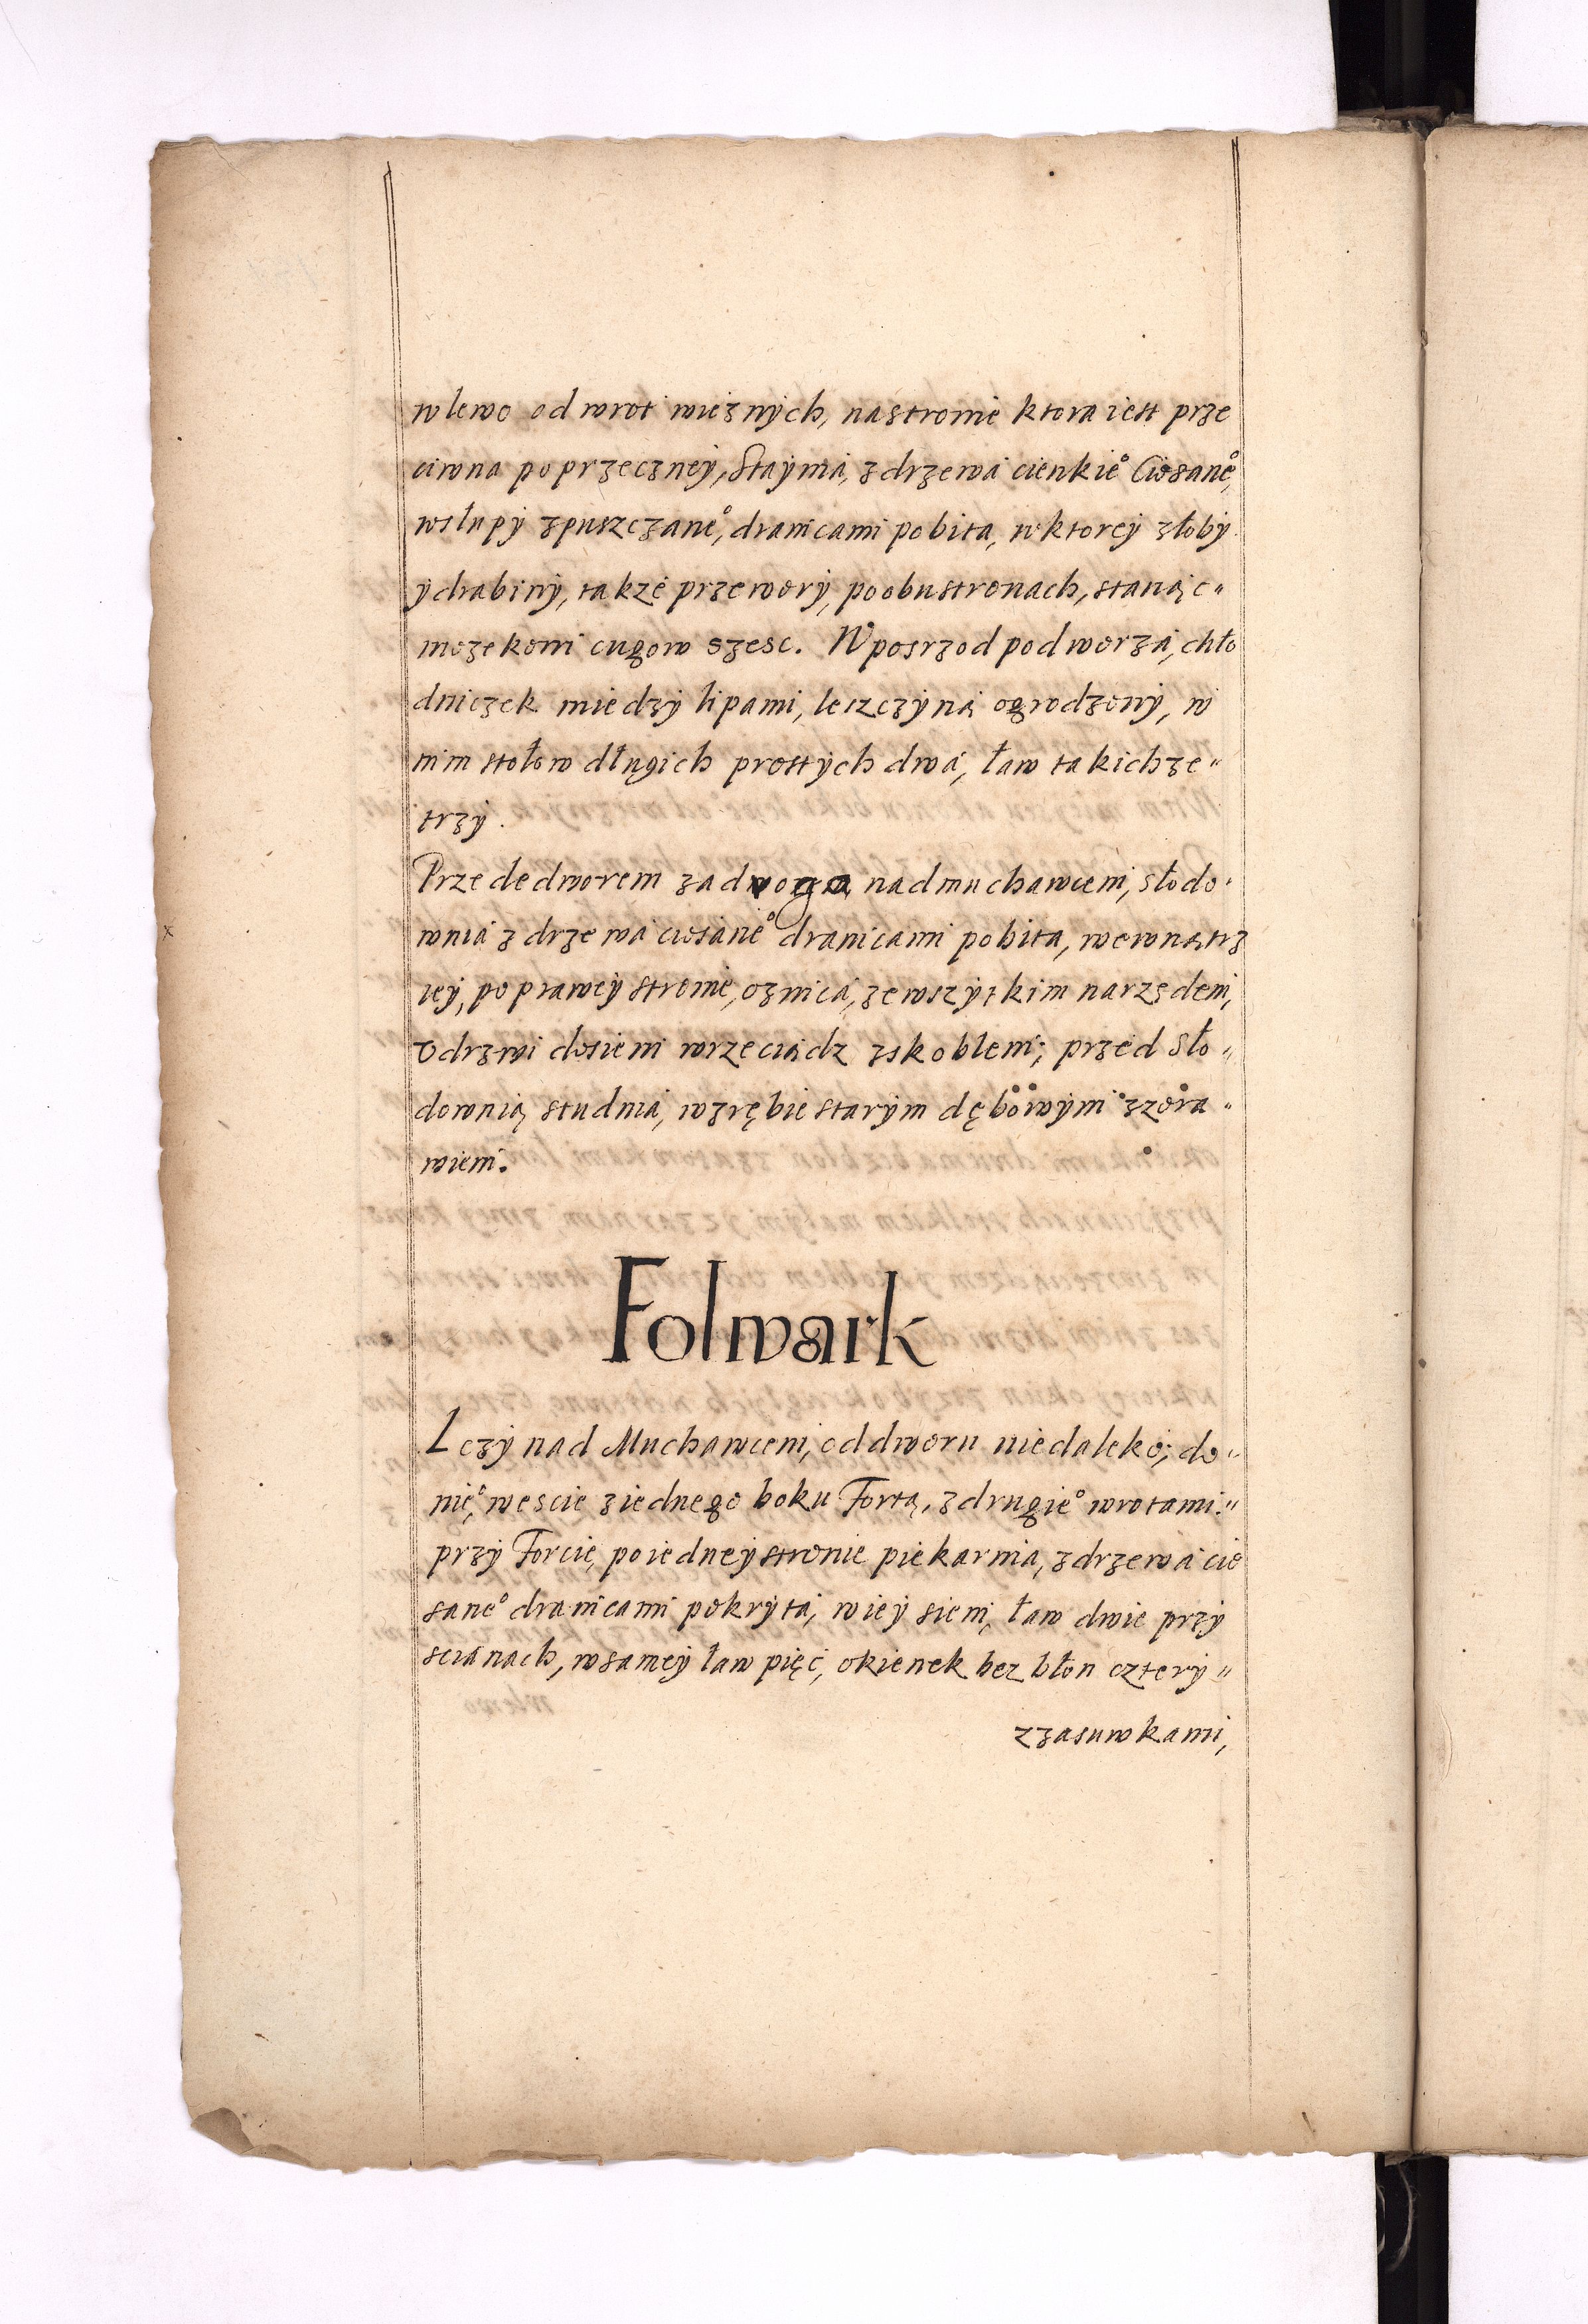 wlewo od wrot wieznych, nastronie ktora iest prze
ciwna poprzeczney, Staynia, zdrzewa cienkie° Ciosane°,
wsłupy zpuszczane°, dranicami pobita, wktorey złoby
y drabiny, także przewory, poobustronach, stanąc"
może koni cugow szesc. Wposrzod podworza, chło
dniczek miedzy lipami, leszczyną ogrodzony, w
nim stołow długich prostych dwa, ław takichże"
trzy.
Przede dworem za drogą nad muchawcem, słodo-
wnia z drzewa ciosane° dranicami pobita, wewnątrz
iey, po prawey stronie, oznica, ze wszytkim narzędem,
v drzwi dosieni wrzeciądz zskoblem; przed Sło"
downią studnia, wzrębie starym dębowym zzora"
wiem.
Folwark
Lezy nad Muchawcem, od dworu niedaleko; do"
nie°, wescie ziednego boku Fortą, zdrugie° wrotami:"
przy Forcie, po iedney stronie piekarnia, zdrzewa cio
sane° dranicami pokryta, wiey sieni, ław dwie przy
scianach, wsamey ław pięć, okienek bez błon cztery"
zzasuwkami,